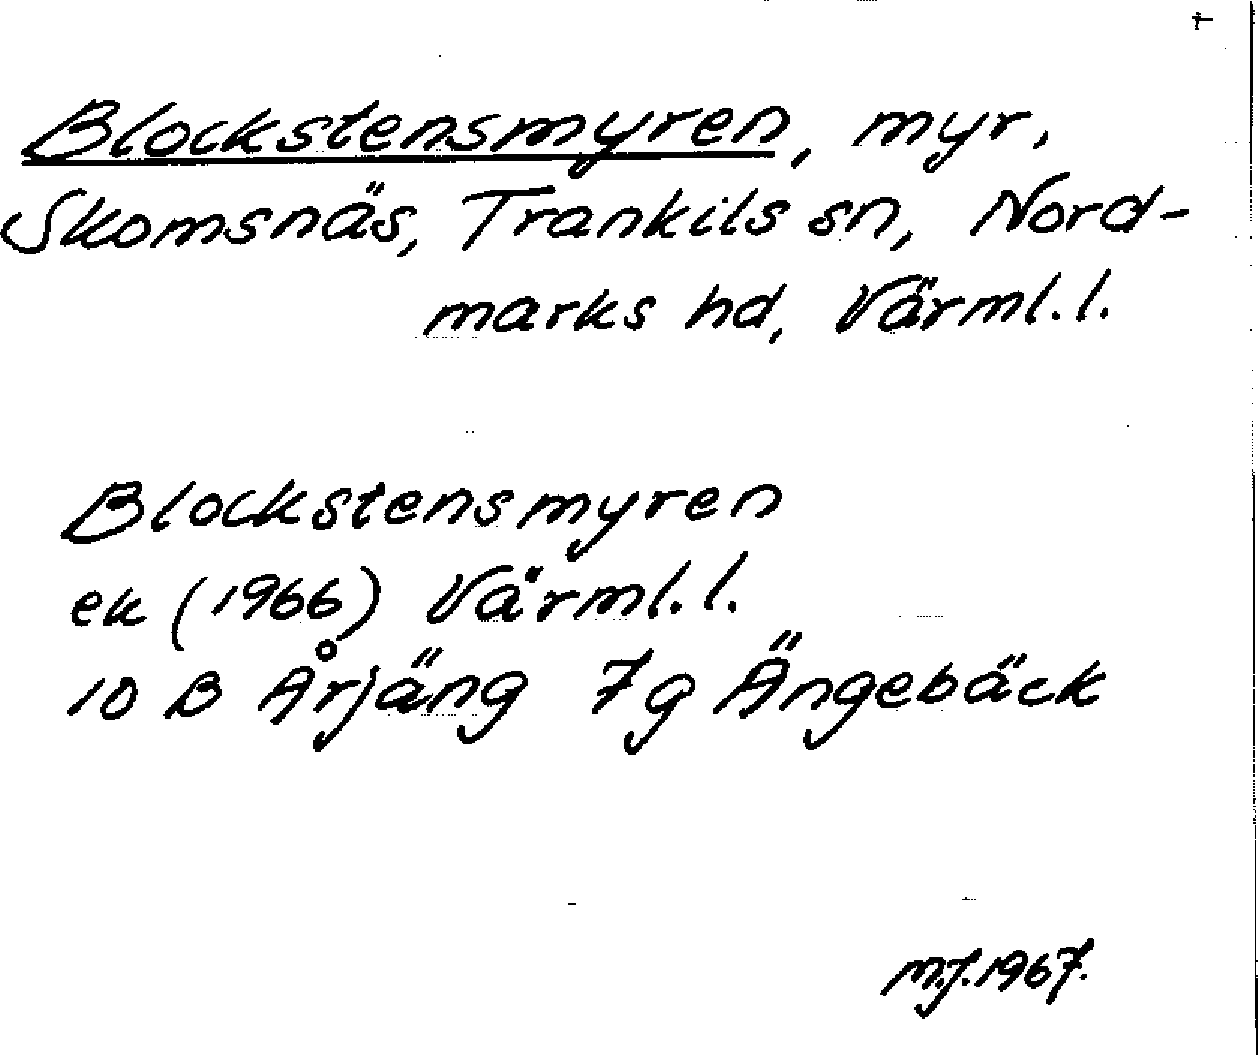 Blockstensmyren, myr,
Skomsnäs, Trankils sn, Nord-
marks hd, Värml.l.
Blockstensmyren
ek (1966) Värml.l.
10 B Årjäng 7g Ängebäck
M.J. 1967.